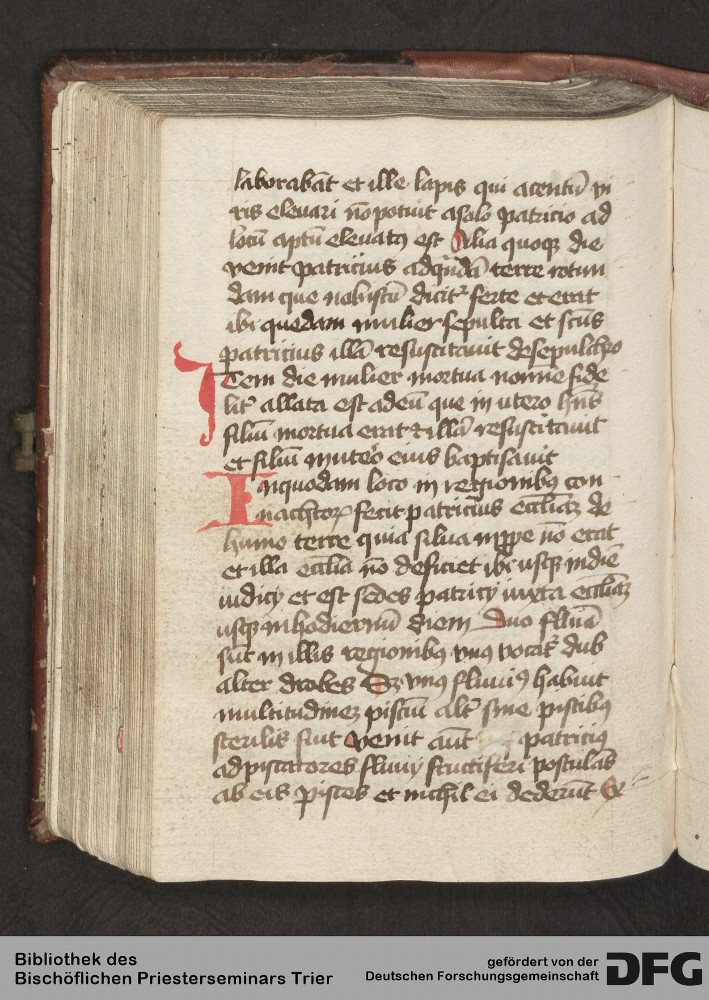 laborabāt et ille lapis qui acentū vi
ris elevari nō potuit asolo patricio ad
locū aptū elevatꝰ est Alia quoqꝫ die
venit patricius adquādā terre rotun
dam que nobiscū dicitᷣ ferte et erat
ibi quedam mulier sepulta et scūs
patricius illā resuscitavit desepulchro
Item die mulier mortua noīe fide
litᷣ allata est adeū que in utero hn̄s
filiū mortua erat ⁊ illā resuscitavit
et filiū eius baptisavit
Inquodam loco in regionibꝰ con
nachtoꝝ fecit patricius eccliaꝫ de
humo terre quia silua ꝓpe nō erat
et illa ecclia nō deficiet ibi usqꝫ indiē
iudicij et est sedes patricij iuxta eccliaꝫ
usqꝫ inhodiernū diem Duo fluuīa
sūt in illis regionibꝰ vnꝰ vocatᷣ dub
alter drobes Sꝫ vnꝰ fluuiꝰ habuit
multitudineꝫ pisciū altᷣ sine piscibꝰ
sterilis fuit venit aūt patriciꝰ
ad piscatores fluvij fructiferi postulās
ab eis pisces et nichil ei dederūt Et
Bibliothek des
Bischöflichen Priesterseminars Trier
gefördert von der
Deutschen Forschungsgemeinschaft
DFG